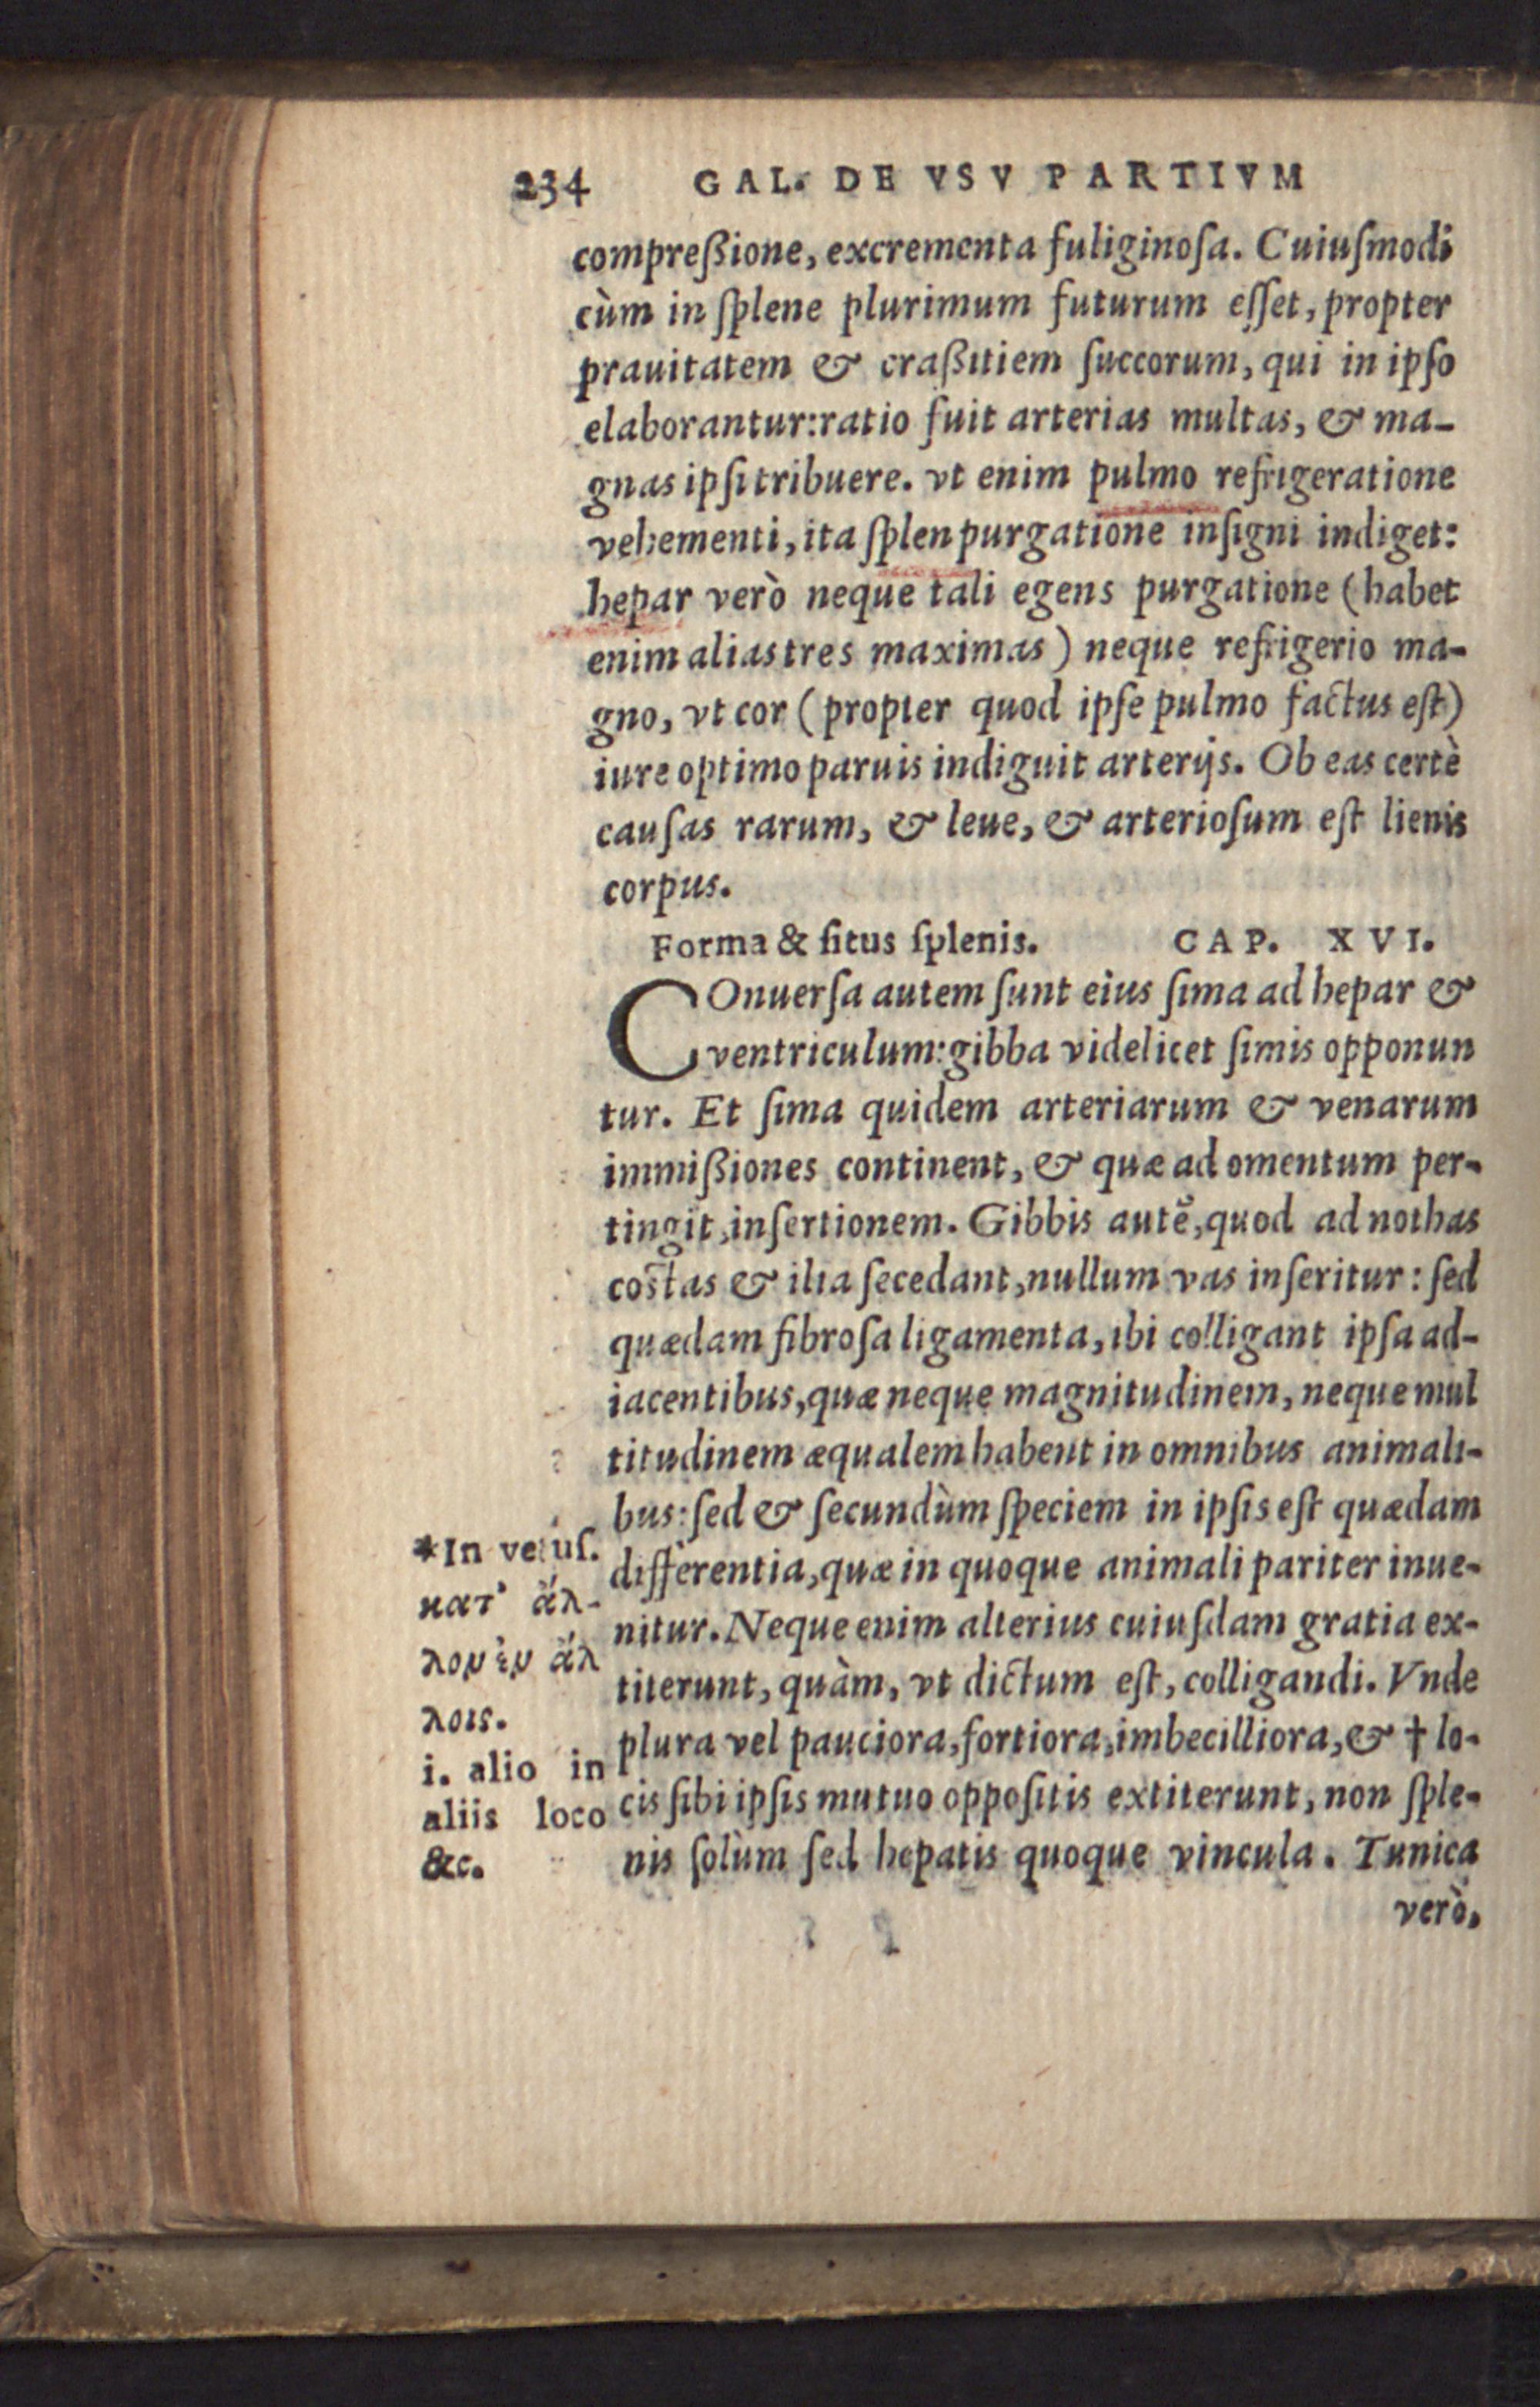 234 GAL. DE VSV PARTIVM
compreßione, excrementa fuliginoſa. Cuiuſmodi
cùm in ſplene plurimum futurum eſſet, propter
prauitatem & craßitiem ſuccorum, qui in ipſo
elaborantur: ratio fuit arterias multas, & ma-
gnas ipſi tribuere. vt enim pulmo refrigeratione
vehementi, ita ſplen purgatione inſigni indiget:
hepar verò neque tali egens purgatione (habet
enim alias tres maximas) neque refrigerio ma-
gno, vt cor (propter quod ipſe pulmo factus eſt)
iure optimo paruis indiguit arterijs. Ob eas certè
cauſas rarum, & leue, & arterioſum eſt lienis
corpus.
Forma & ſitus ſplenis. CAP. XVI.
COnuerſa autem ſunt eius ſima ad hepar &
ventriculum: gibba videlicet ſimis opponun
tur. Et ſima quidem arteriarum & venarum
immißiones continent, & quæ ad omentum per-
tingit, inſertionem. Gibbis autē, quod ad nothas
coſtas & ilia ſecedant, nullum vas inſeritur: ſed
quædam fibroſa ligamenta, ibi colligant ipſa ad-
iacentibus, quæ neque magnitudinem, neque mul
titudinem æqualem habent in omnibus animali-
bus: ſed & ſecundùm ſpeciem in ipſis eſt quædam
differentia, quæ in quoque animali pariter inue-
nitur. Neque enim alterius cuiuſdam gratia ex-
titerunt, quàm, vt dictum eſt, colligandi. Vnde
plura vel pauciora, fortiora, imbecilliora, & † lo-
cis ſibi ipſis mutuo oppoſitis extiterunt, non ſple-
nis ſolùm ſed hepatis quoque vincula. Tunica
verò,
*In vetuſ.
κατ' ἄλ-
λον ἐν ἄλ
λοις.
i. alio in
aliis loco
&c.